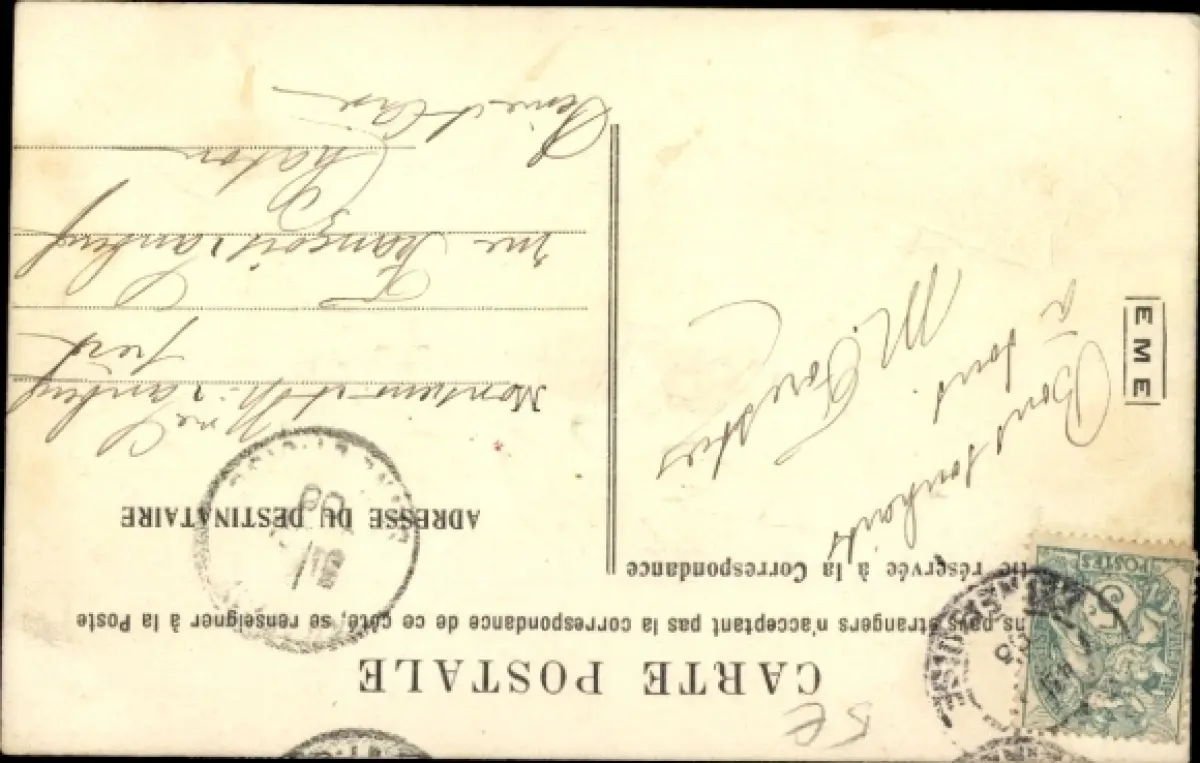 CARTE POSTALE
ns pays étrangers n'acceptant pas la correspondance de ce côté, se renseigner à la Poste
tie réservée à la Correspondance
ADRESSE DU DESTINATAIRE
Bons souhaits
à tous
M.
Monsieur et Mme
père
rue François
Chatou
Seine et Oise
EME
POSTES
5€